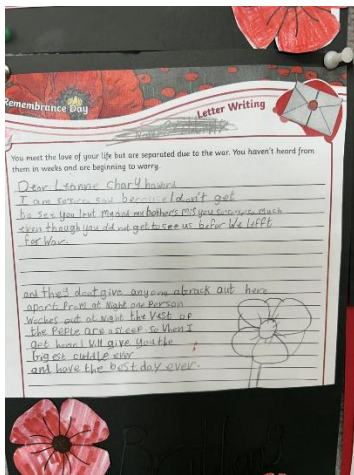 Remembrance Day
Letter Writing
You meet the love of your life but are separated due to the war. You haven't heard from
them in weeks and are beginning to worry.
Dear Leanne
I am so sad because I don't get
to see you and my brothers mis you much
even though you did not get to see us befor We Lefft
for War.
and they dont give anyone abrack out here
apart from at Night one Person
Waches out at Night the Vest of
the Peple are asleep. So When I
get home I Will give you the
bigest cuddle ever
and have the best day ever.